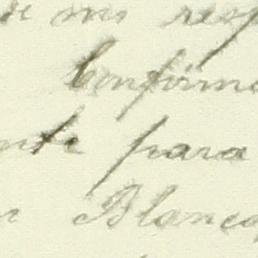 de mis resp
Confirma
nte para
Blanca